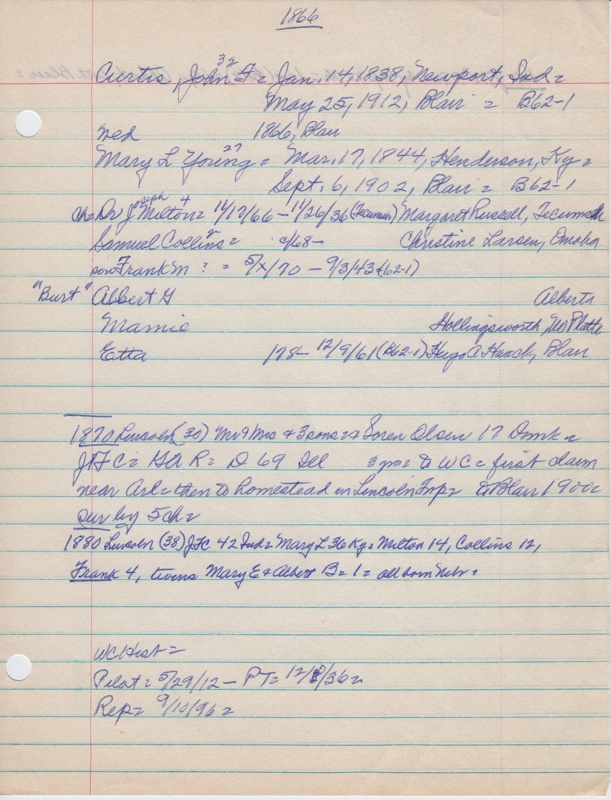 1866
32
Curtis, John F = Jan. 14, 1838, Newport, Ind =
May 25, 1912, Blair = B62-1
wed 1866, Blair
27
Mary L Young = Mar. 17, 1844, Henderson, Ky =
Sept. 6, 1902, Blair = B62-1
ch = Dr Joseph Milton = 11/17/66 - 11/26/36 (Tecumseh) Margaret Russell, Tecumseh
Samuel Collins = c/68 - Christine Larsen, Omaha
son Frank M ? = 5/x/70 - 9/3/43 (62-1)
"Burt" Albert G Alberta
Mamie Hollingsworth, No Platte
Etta 178 - 12/9/61 (B62-1) Hugo A Haack, Blair
1870 Lincoln (30) Mr & Mrs & 3 sons = & Soren Olsen 17 Dmk =
JFC = GAR = D 69 Ill = to WC = first claim
near Arl = then to homestead in Lincoln Twp = to Blair 1900c
Sur by 5 ch =
1880 Lincoln (38) JFC 42 Ind = Mary L 36 Ky = Milton 14, Collins 12,
Frank 4, twins Mary E & Albert B = 1 = all born Nebr =
WCHist =
Pilot = 5/29/12 - PT = 12/ /36 =
Rep = 9/10/96 =